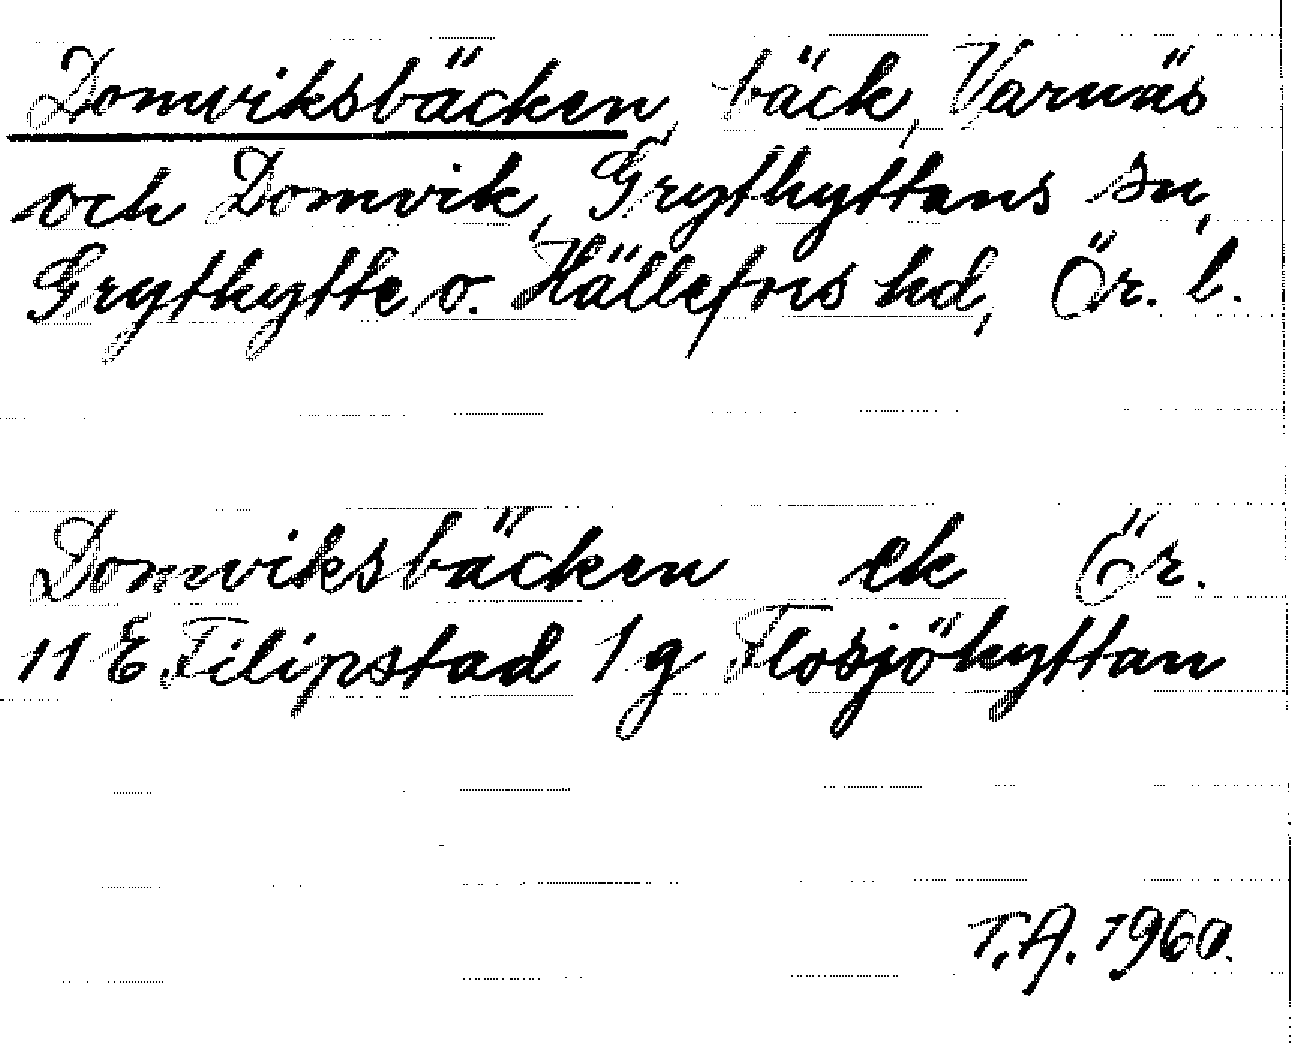 Domviksbäcken, bäck, Varnäs
och Domvik, Grythyttans sn,
Grythytte o. Hällefors hd, Ör. l.
Domviksbäcken ek Ör.
11 E Filipstad 1 g Flosjöhyttan
T.A. 1960.